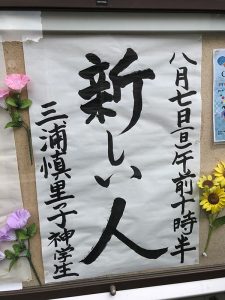 八月七日(日)午前十時半
新しい人
三浦慎里子神学生